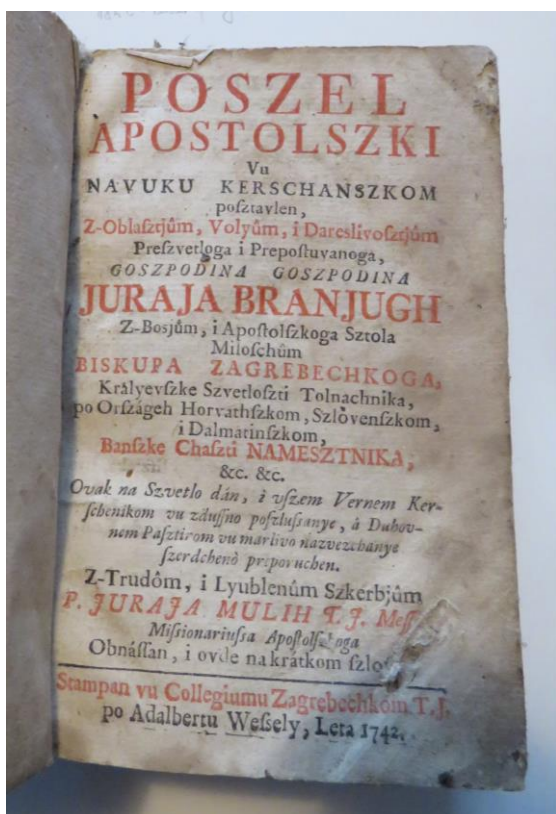 POSZEL
APOSTOLSZKI
Vu
NAVUKU KERSCHANSZKOM
posztavlen,
Z-Oblaſztjûm, Volyûm, i Dareslivosztjûm
Preſzvetloga i Prepoſtuvanoga,
GOSZPODINA GOSZPODINA
JURAJA BRANJUGH
Z-Bosjûm, i Apoſtolſzkoga Sztola
Miloſchûm
BISKUPA ZAGREBECHKOGA,
Krályevſzke Szvetloſzti Tolnachnika,
po Orſzágeh Horvathſzkom, Szlòvenſzkom,
i Dalmatinſzkom,
Banſzke Chaſzti NAMESZTNIKA,
&c. &c.
Ovak na Szvetlo dán, i vſzem Vernem Ker-
ſchenikom vu zduſſno poſzluſsanye, á Duhov-
nem Paſztirom vu marlivo nazvezchanye
ſzerdchenò preporuchen.
Z-Trudôm, i Lyublenûm Szkerbjûm
P. JURAJA MULIH T. J. Meſſ
Miſſionariuſsa Apoſtolſzkoga
Obnáſſan, i ovde na krátkom ſzlo
Stampan vu Collegiumu Zagrebechkom T. J.
po Adalbertu Weſſely, Leta 1742.